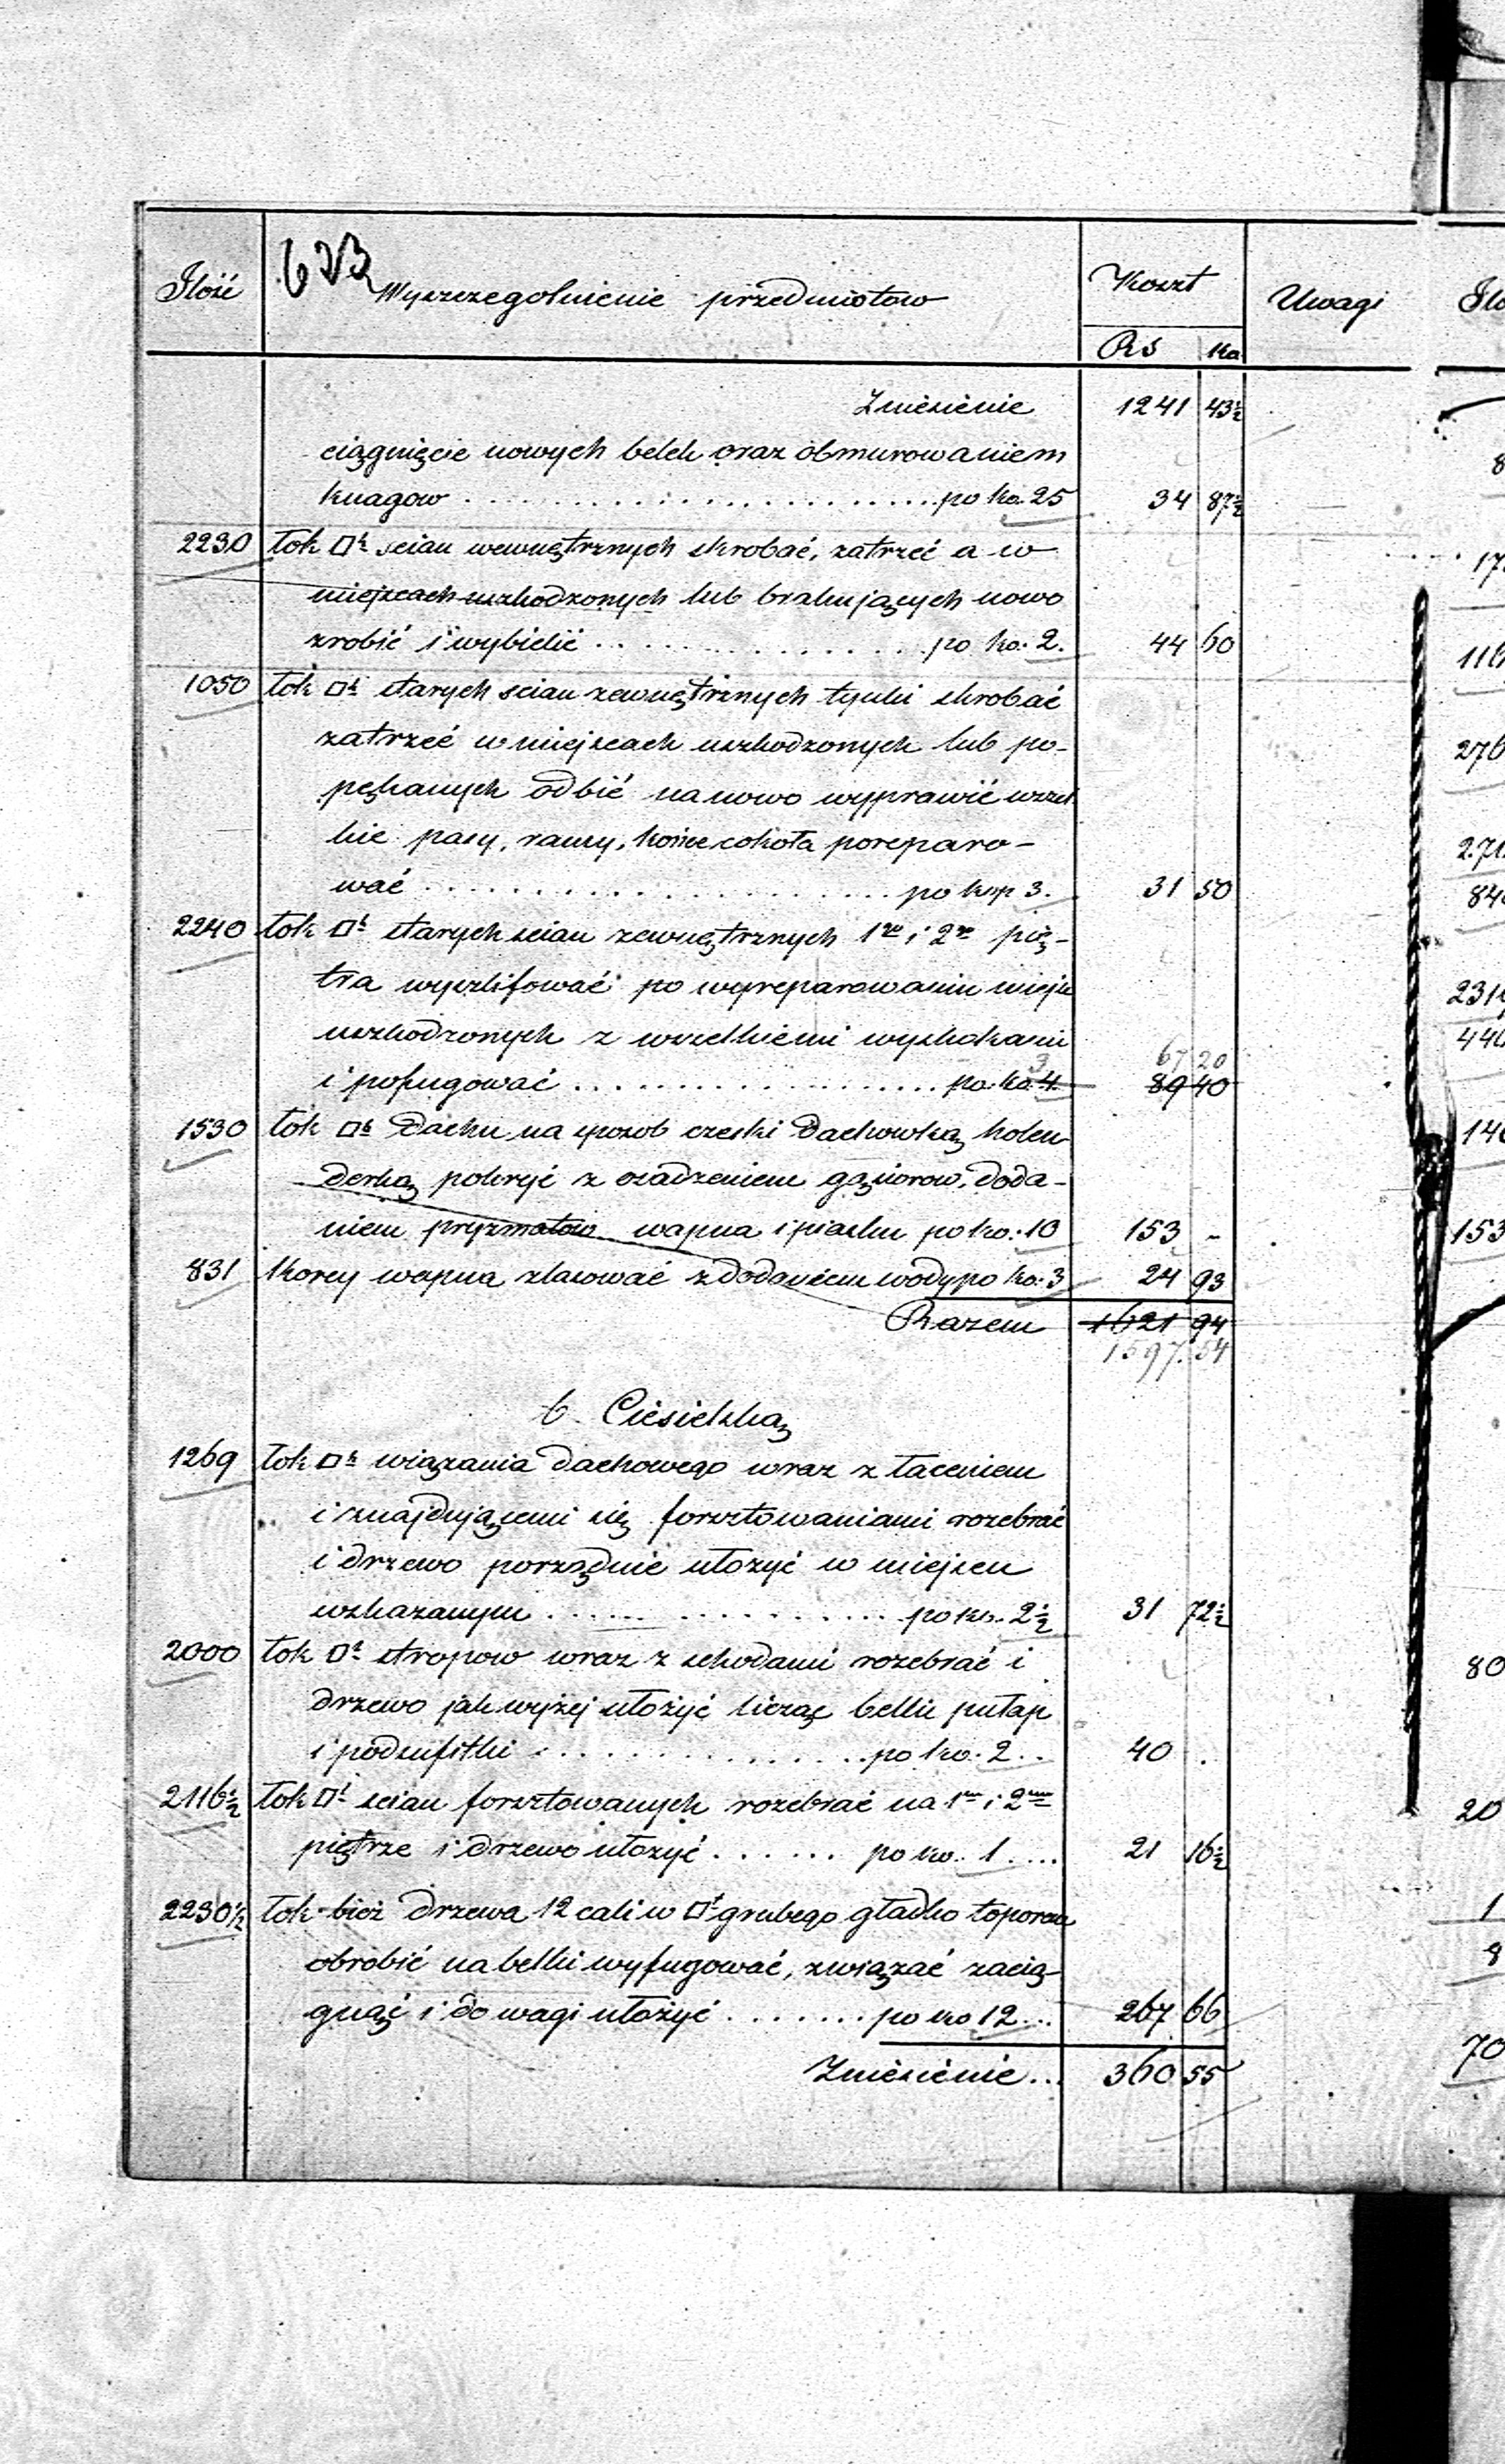 623
Ilość Wyszczegolnienie przedmiotow Koszt Uwagi
Rs Ko
Zniesienie 1241 43½
ciągnięcie nowych belek oraz obmurowaniem
knagow po ko. 25 34 87½
2230 łok □ł scian wewnętrznych skrobać, zatrzeć a w
miejscach uszkodzonych lub brakujących nowo
zrobić i wybielić po ko. 2. 44 60
1050 łok □ł starych scian zewnętrznych tynki skrobać
zatrzeć w miejscach uszkodzonych lub po-
pękanych odbić na nowo wyprawić wszel
kie pasy, ramy, końce cokoła poreparo-
wać po kop 3. 31 50
2240 łok □ł starych scian zewnętrznych 1go i 2go pię-
tra wyszlifować po wyreparowaniu miejsc
uszkodzonych z wszelkiemi wyskokami
67 20
i pofugować po ko. 4. 3 89 40
1530 łok □ł dachu na sposob czeski dachowką holen
derką pokryć z osadzeniem gąsiorow, doda-
niem pryzmatow wapna i piasku po ko. 10 153 -
831 Korcy wapna zlasować z dodaniem wody po ko. 3 24 93
Razem 1621 94
1597. 54
b. Ciesielską
1269 łok □ł wiązania dachowego wraz z łaceniem
i znajdującemi się forsztowaniami rozebrać
i drzewo porządnie ułożyć w miejscu
wskazanym po ko. 2½ 31 72½
2000 łok □ł stropow wraz z schodami rozebrać i
drzewo jak wyżej ułożyć licząc belki pułap
i podsufitki po ko. 2 40 .
2116½ łok □ł scian forsztowanych rozebrać na 1m i 2m
piętrze i drzewo ułożyć po ko. 1 21 16½
2230½ łok bież drzewa 12 cali w □ł grubego gładko toporem
obrobić na belki wyfugować, związać zacią-
gnąć i do wagi ułożyć po ko 12 267 66
Zniesienie 360 55